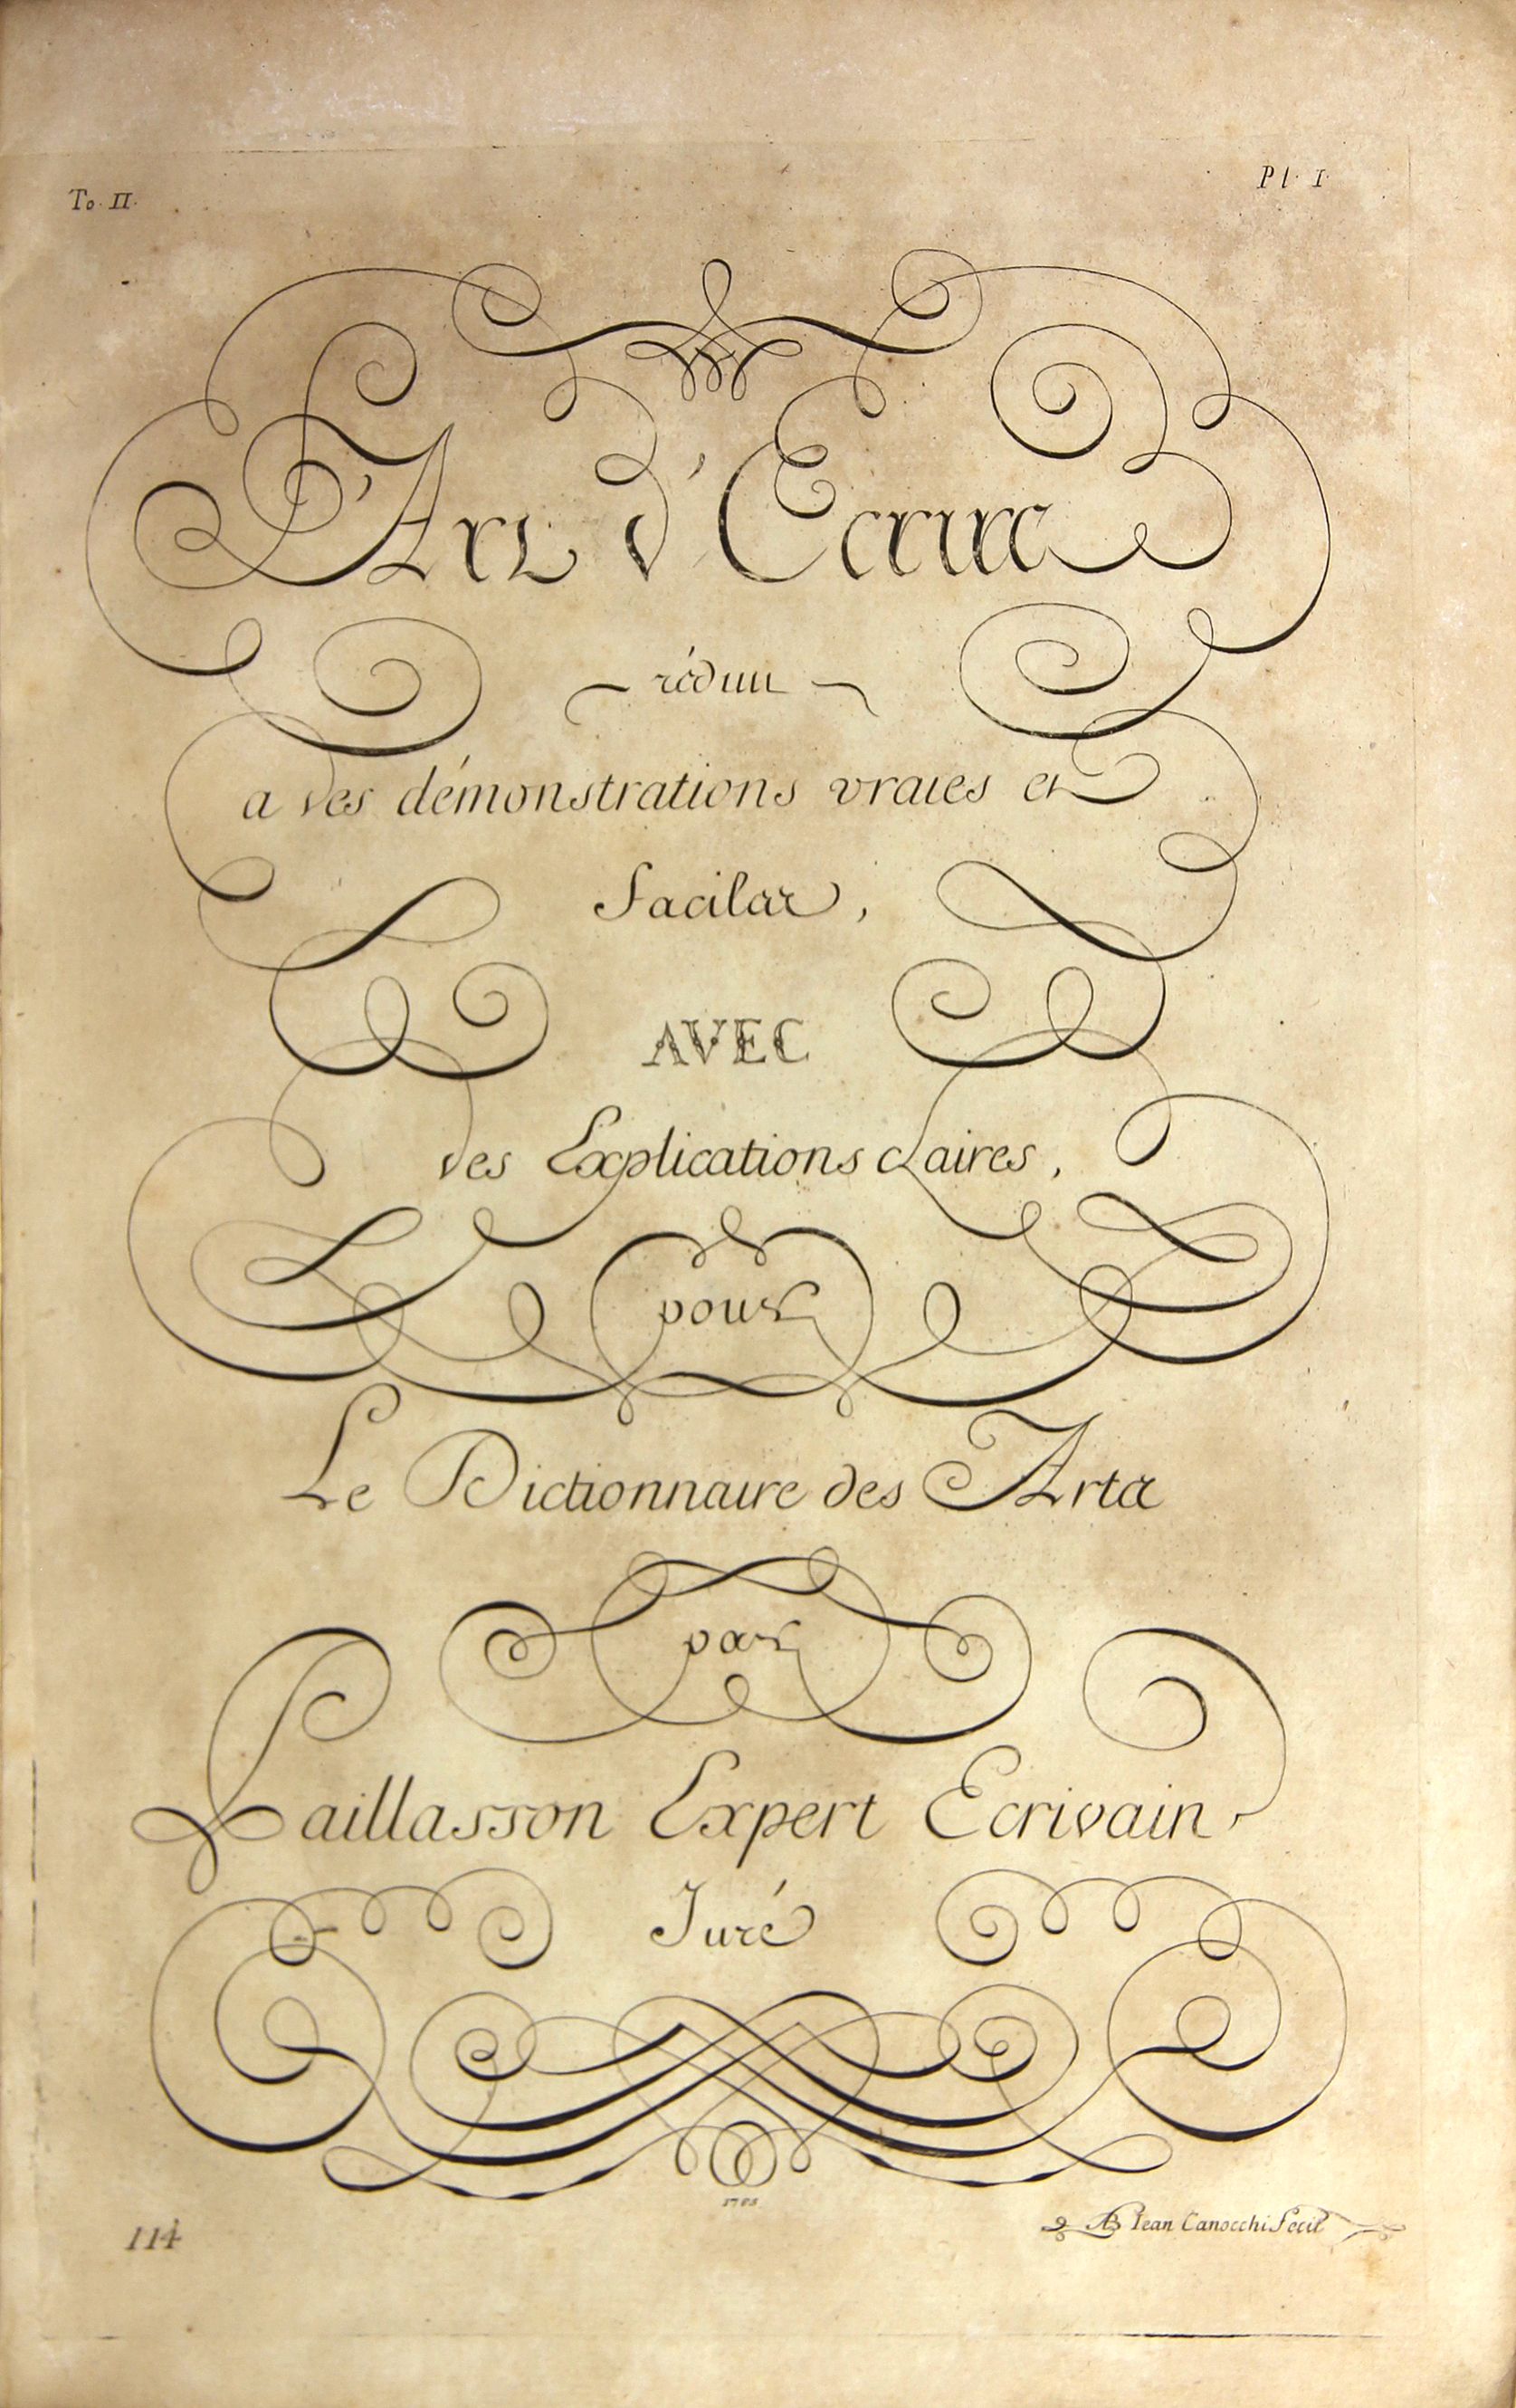 To. II.
Pl. I.
L'Art d'Ecrire
réduit
a des démonstrations vraies et
faciles,
AVEC
des Explications claires,
pour
Le Dictionnaire des Arts
par
Paillasson Expert Ecrivain
Juré
114
AB Jean Canocchi Fecit